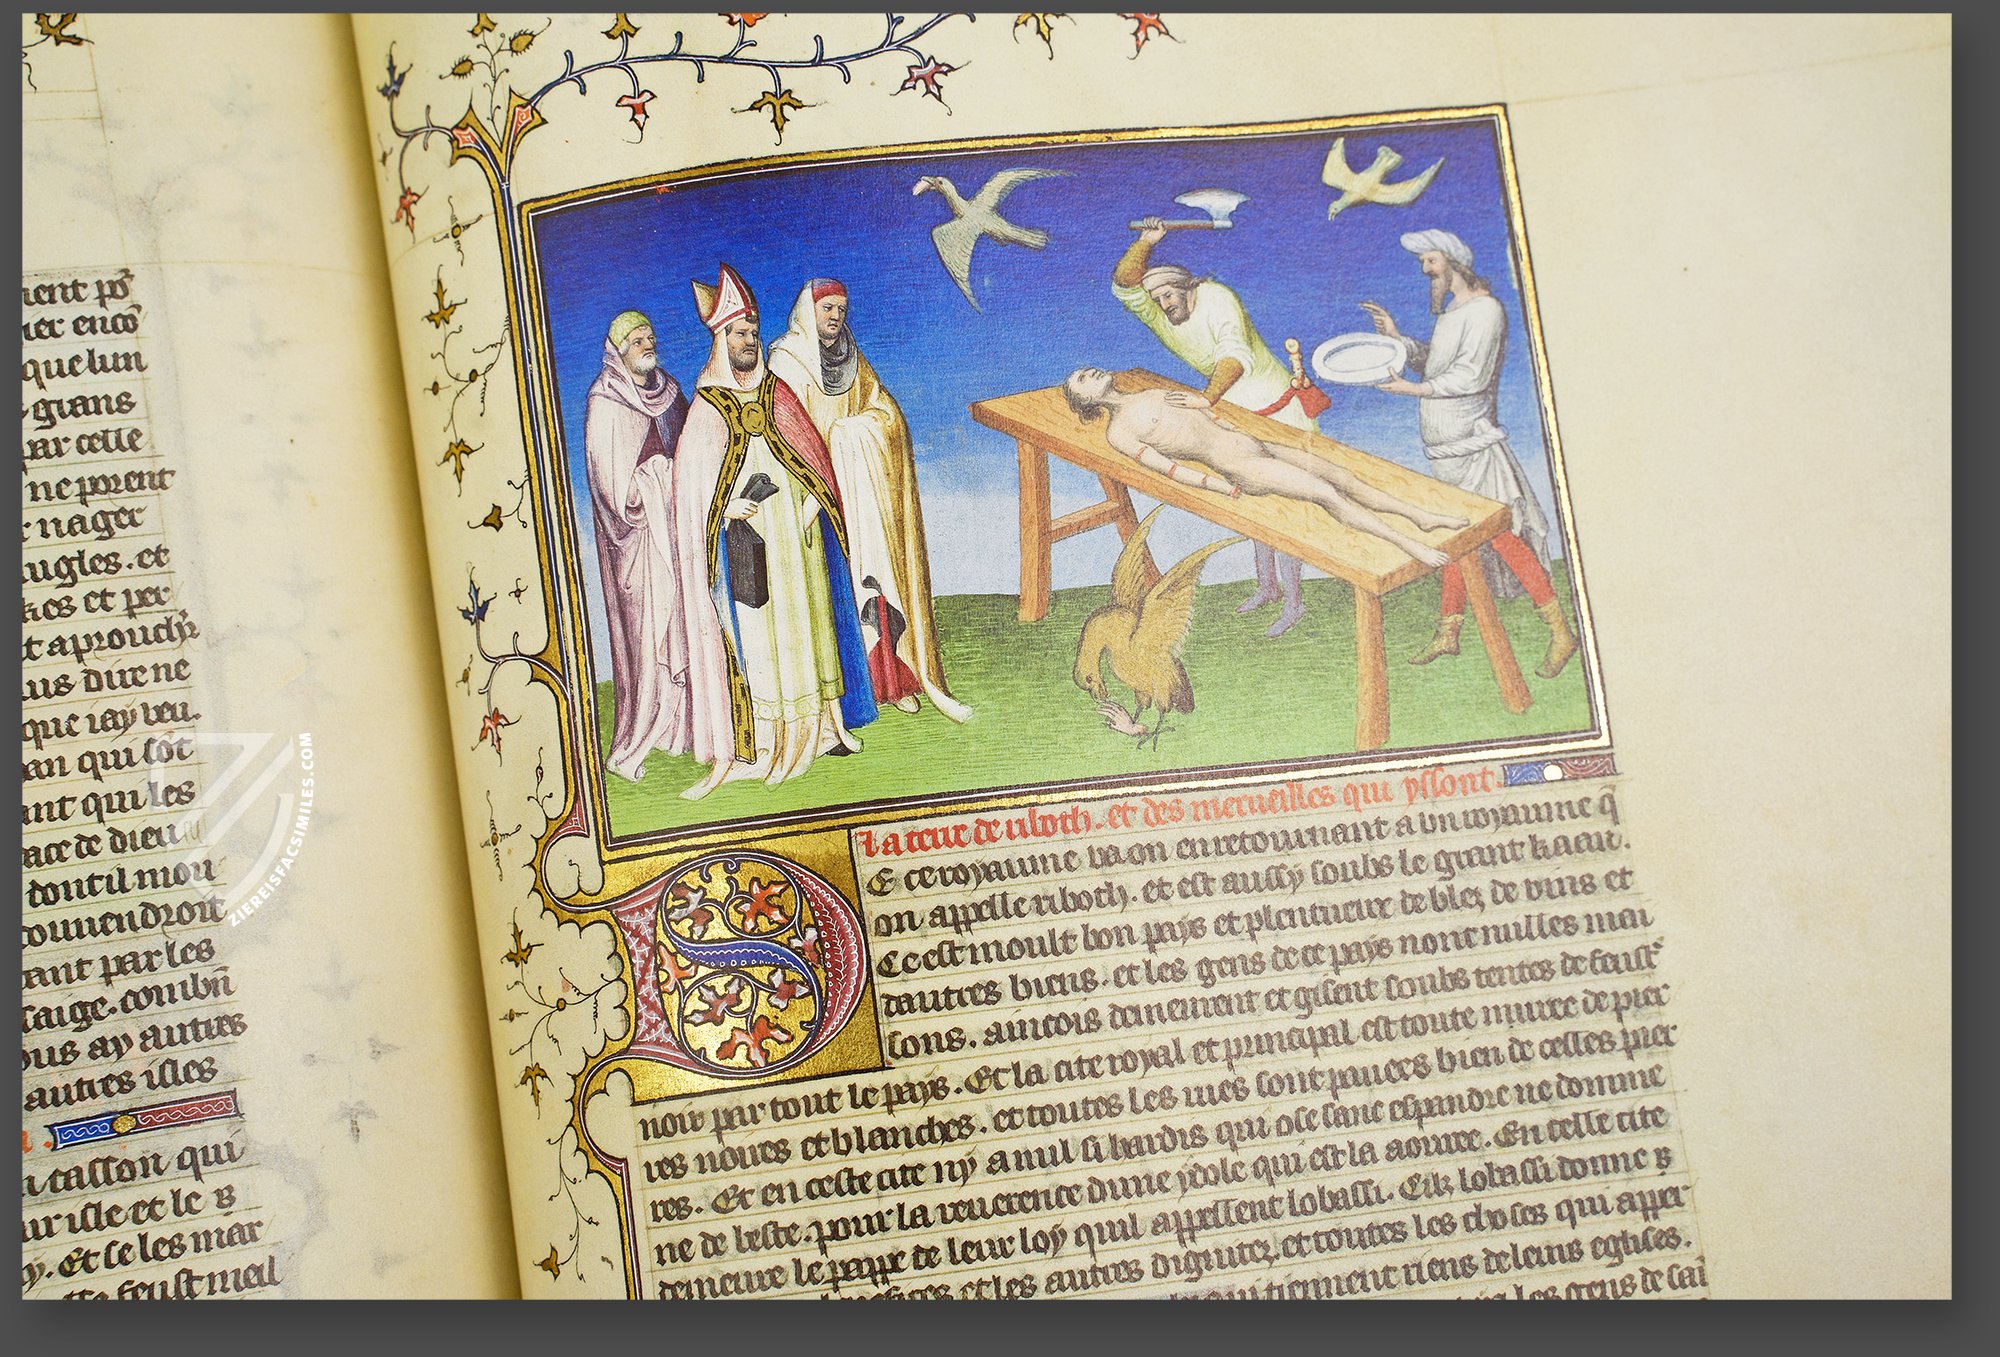 ient pō
ier encō
que lun
grans
par celle
ne porent
nager
ugles. et
kes et per
t aprouch̄r
us dire ne
que iay veu.
an qui sōt
ant qui les
ace de dieu
dont il mou
ouuendroit
ant par les
saige. combn̄
ous ay autres
autres isles
tasson qui
ur isle et le
y. Et se les mar
feust meil
ZIEREISFACSIMILES.COM
la terre de riboth. et des merueilles qui yssont.
E ce royaume va on en retournant a vn royaume q̄
on appelle riboth. et est aussy soubs le grant kaan.
Ce est moult bon pays et plentureux de blez de vins et
dautres biens. et les gens de ce pays nont nulles mai
sons. aincois demeurent et gisent soubs tentes de feust̄
D noir par tout le pays. Et la cite royal et principal est toute muree de pier
res noires et blanches. et toutes les rues sont pauees bien de celles pier
res. Et en ceste cite ny a nul si hardis qui ose sanc espandre ne domme
ne de beste. pour la reuerence dune ydole qui est la aouree. En celle cite
demeure le pappe de leur loy quil appellent lobassi. Cilz lobassi donne
les autres dignitez et toutes les choses qui apper
tiennent riens de leurs eglises.
les gens de sai